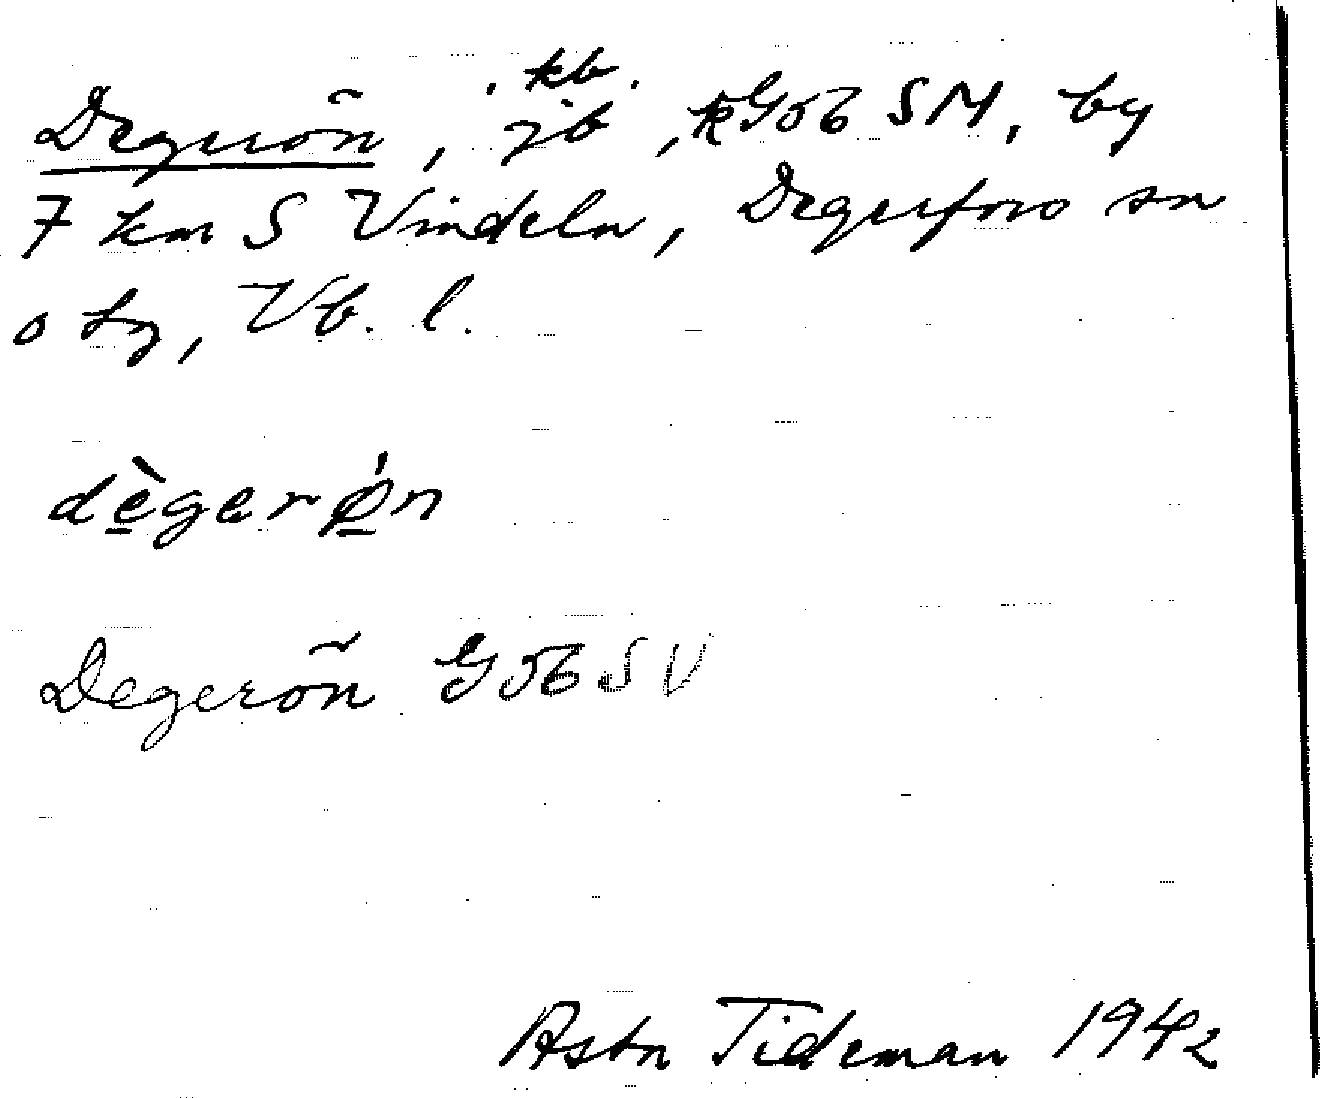 Degerön, jb, kb. kGobSM, by
7 km S Vindeln, Degerfors sn
o tg, Vb. l.
dègerǿn
Degerön GobSV
Astn Tideman 1942